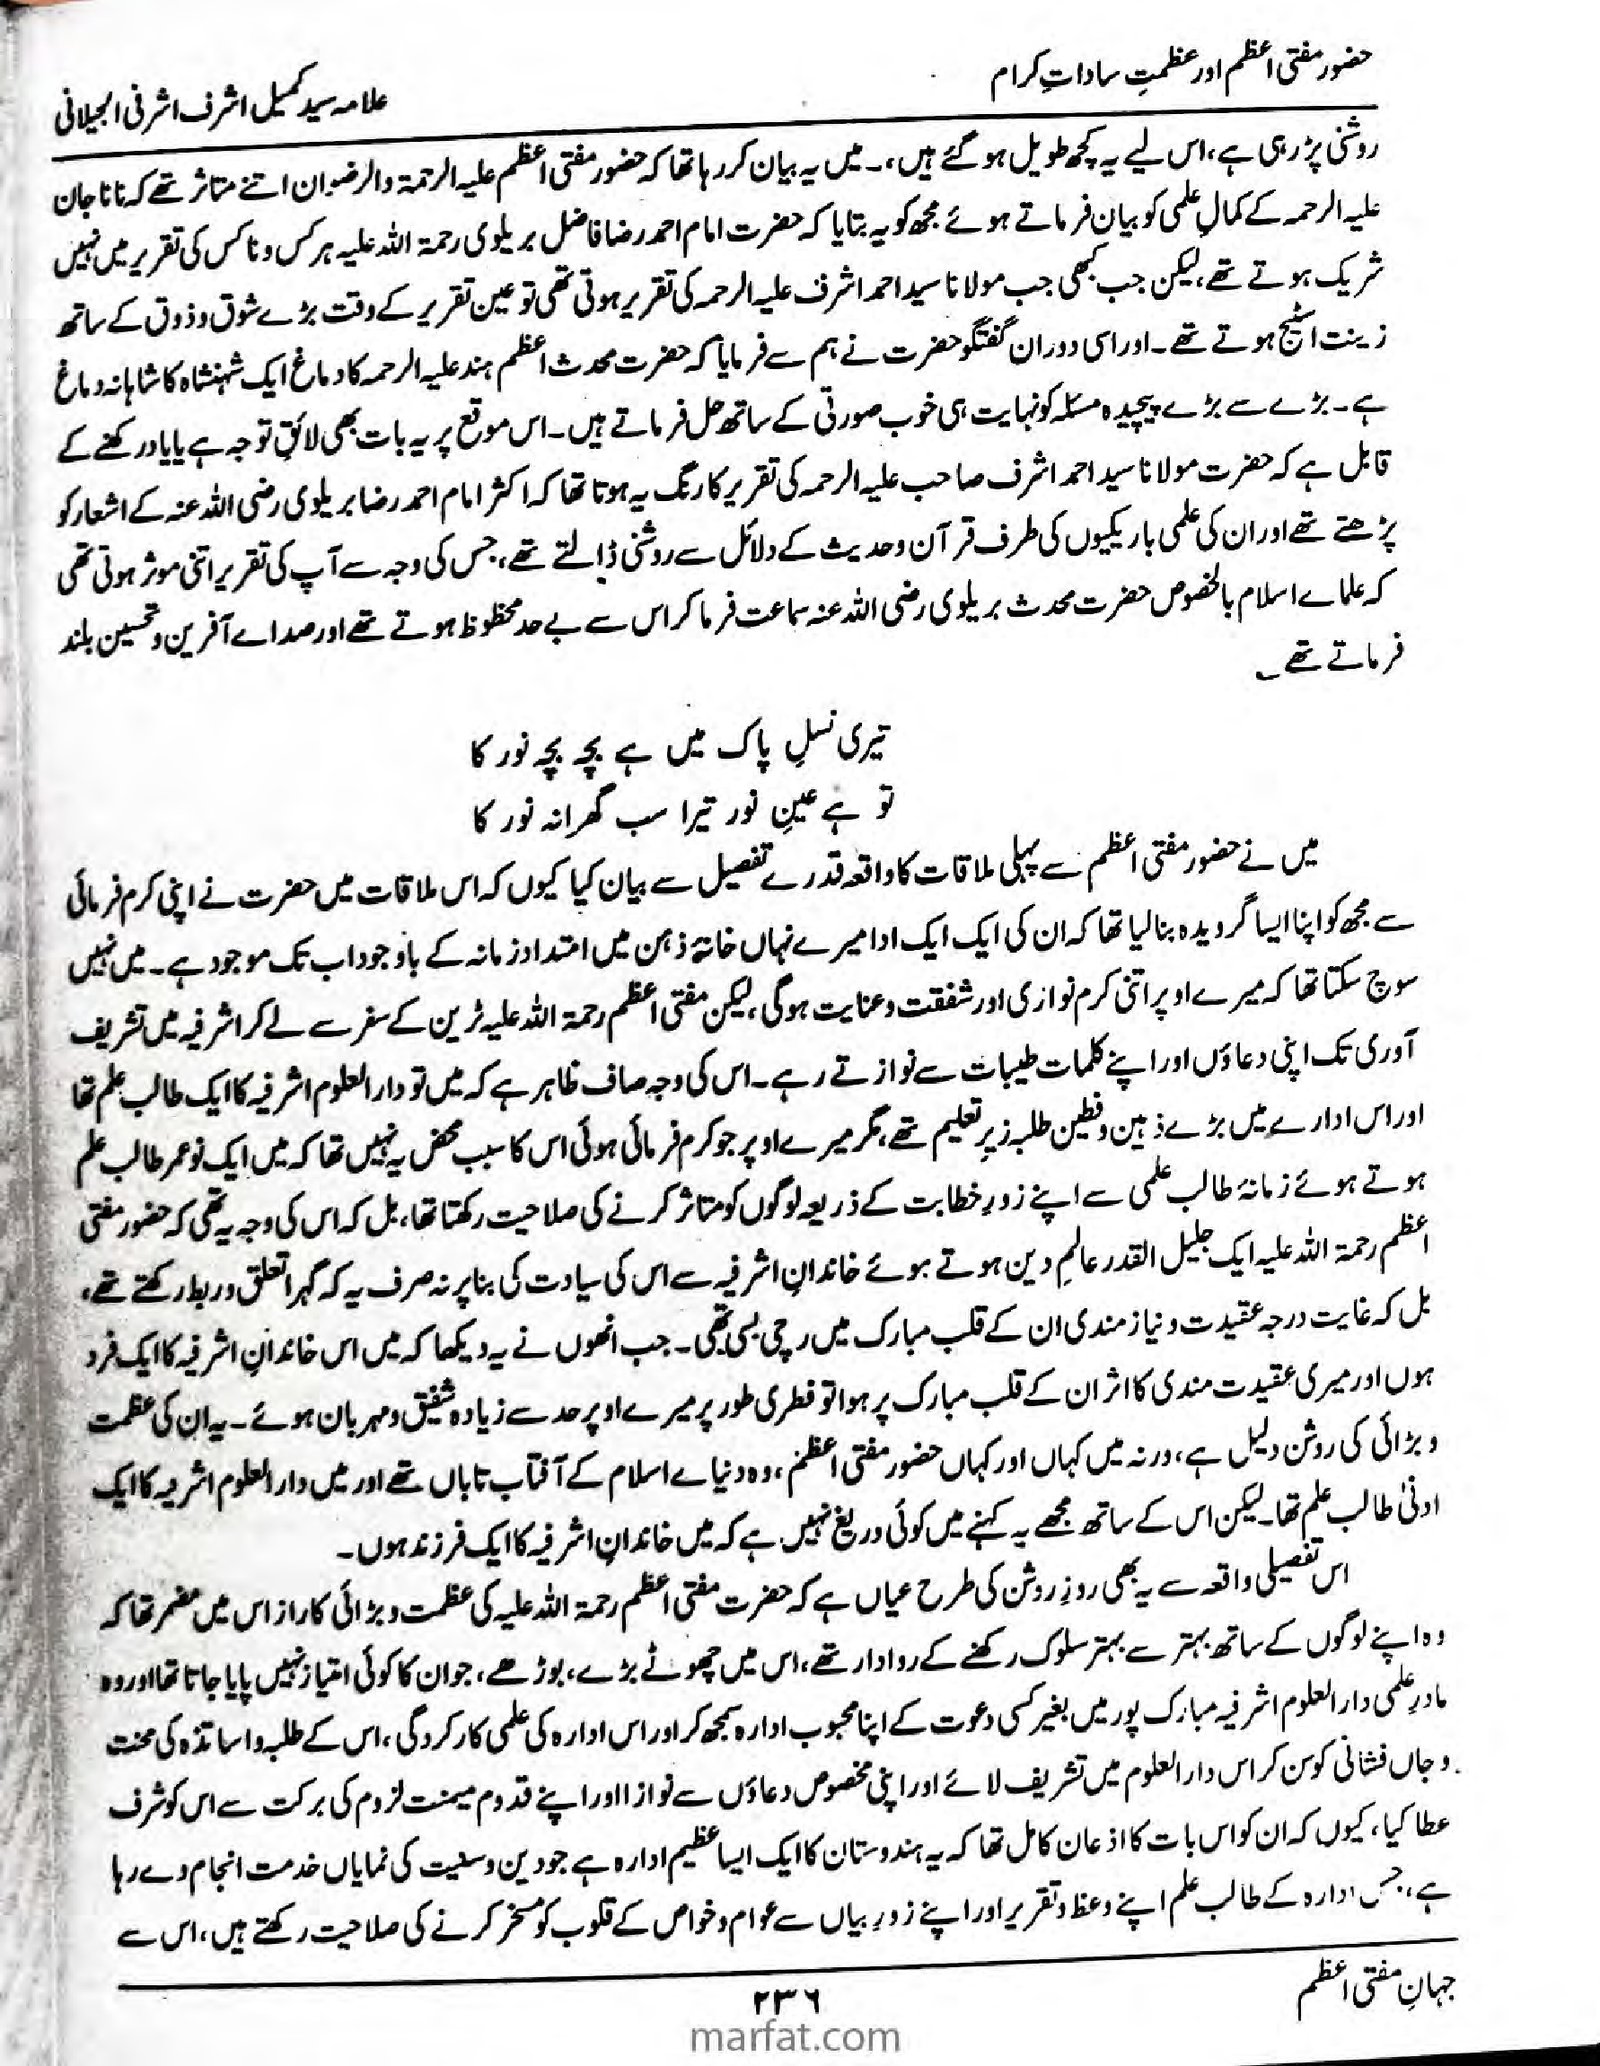 حضور مفتی اعظم اور عظمتِ ساداتِ کرام
علامہ سید کمیل اشرف اشرفی الجیلانی
روشنی پڑ رہی ہے، اس لیے یہ کچھ طویل ہو گئے ہیں،۔ میں یہ بیان کر رہا تھا کہ حضور مفتی اعظم علیہ الرحمۃ والرضوان اتنے متاثر تھے کہ نانا جان
علیہ الرحمہ کے کمالِ علمی کو بیان فرماتے ہوئے مجھ کو یہ بتایا کہ حضرت امام احمد رضا فاضل بریلوی رحمۃ اللہ علیہ ہر کس و ناکس کی تقریر میں نہیں
شریک ہوتے تھے، لیکن جب کبھی جب مولانا سید احمد اشرف علیہ الرحمہ کی تقریر ہوتی تھی تو عین تقریر کے وقت بڑے شوق و ذوق کے ساتھ
زینت اسٹیج ہوتے تھے۔ اور اسی دوران گفتگو حضرت نے ہم سے فرمایا کہ حضرت محدث اعظم ہند علیہ الرحمہ کا دماغ ایک شہنشاہ کا شاہانہ دماغ
ہے۔ بڑے سے بڑے پیچیدہ مسئلہ کو نہایت ہی خوب صورتی کے ساتھ حل فرماتے ہیں۔ اس موقع پر یہ بات بھی لائق توجہ ہے یا یاد رکھنے کے
قابل ہے کہ حضرت مولانا سید احمد اشرف صاحب علیہ الرحمہ کی تقریر کا رنگ یہ ہوتا تھا کہ اکثر امام احمد رضا بریلوی رضی اللہ عنہ کے اشعار کو
پڑھتے تھے اور ان کی علمی باریکیوں کی طرف قرآن و حدیث کے دلائل سے روشنی ڈالتے تھے، جس کی وجہ سے آپ کی تقریر اتنی موثر ہوتی تھی
کہ علماے اسلام بالخصوص حضرت محدث بریلوی رضی اللہ عنہ سماعت فرما کر اس سے بے حد محظوظ ہوتے تھے اور صداے آفرین و تحسین بلند
فرماتے تھے ؎
تیری نسلِ پاک میں ہے بچہ بچہ نور کا
تو ہے عینِ نور تیرا سب گھرانہ نور کا
میں نے حضور مفتی اعظم سے پہلی ملاقات کا واقعہ قدرے تفصیل سے بیان کیا کیوں کہ اس ملاقات میں حضرت نے اپنی کرم فرمائی
سے مجھ کو اپنا ایسا گرویدہ بنا لیا تھا کہ ان کی ایک ایک ادا میرے نہاں خانۂ ذہن میں امتداد زمانہ کے باوجود اب تک موجود ہے۔ میں نہیں
سوچ سکتا تھا کہ میرے اوپر اتنی کرم نوازی اور شفقت و عنایت ہوگی، لیکن مفتی اعظم رحمۃ اللہ علیہ ٹرین کے سفر سے لے کر اشرفیہ میں تشریف
آوری تک اپنی دعاؤں اور اپنے کلمات طیبات سے نوازتے رہے۔ اس کی وجہ صاف ظاہر ہے کہ میں تو دار العلوم اشرفیہ کا ایک طالب علم تھا
اور اس ادارے میں بڑے ذہین و فطین طلبہ زیرِ تعلیم تھے، مگر میرے اوپر جو کرم فرمائی ہوئی اس کا سبب محض یہ نہیں تھا کہ میں ایک نو عمر طالب علم
ہوتے ہوئے زمانۂ طالب علمی سے اپنے زورِ خطابت کے ذریعہ لوگوں کو متاثر کرنے کی صلاحیت رکھتا تھا، بل کہ اس کی وجہ یہ تھی کہ حضور مفتی
اعظم رحمۃ اللہ علیہ ایک جلیل القدر عالمِ دین ہوتے ہوئے خاندانِ اشرفیہ سے اس کی سیادت کی بنا پر نہ صرف یہ کہ گہرا تعلق و ربط رکھتے تھے،
بل کہ غایت درجہ عقیدت و نیاز مندی ان کے قلب مبارک میں رچی بسی تھی۔ جب انھوں نے یہ دیکھا کہ میں اس خاندانِ اشرفیہ کا ایک فرد
ہوں اور میری عقیدت مندی کا اثر ان کے قلب مبارک پر ہوا تو فطری طور پر میرے اوپر حد سے زیادہ شفیق و مہربان ہوئے۔ یہ ان کی عظمت
و بڑائی کی روشن دلیل ہے، ورنہ میں کہاں اور کہاں حضور مفتی اعظم، وہ دنیاے اسلام کے آفتاب تاباں تھے اور میں دار العلوم اشرفیہ کا ایک
ادنیٰ طالب علم تھا۔ لیکن اس کے ساتھ مجھے یہ کہنے میں کوئی دریغ نہیں ہے کہ میں خاندانِ اشرفیہ کا ایک فرزند ہوں۔
اس تفصیلی واقعہ سے یہ بھی روزِ روشن کی طرح عیاں ہے کہ حضرت مفتی اعظم رحمۃ اللہ علیہ کی عظمت و بڑائی کا راز اس میں مضمر تھا کہ
وہ اپنے لوگوں کے ساتھ بہتر سے بہتر سلوک رکھنے کے روادار تھے، اس میں چھوٹے بڑے، بوڑھے، جوان کا کوئی امتیاز نہیں پایا جاتا تھا اور وہ
مادرِ علمی دار العلوم اشرفیہ مبارک پور میں بغیر کسی دعوت کے اپنا محبوب ادارہ سمجھ کر اور اس ادارہ کی علمی کارکردگی، اس کے طلبہ و اساتذہ کی محنت
و جاں فشانی کو سن کر اس دار العلوم میں تشریف لائے اور اپنی مخصوص دعاؤں سے نوازا اور اپنے قدوم میمنت لزوم کی برکت سے اس کو شرف
عطا کیا، کیوں کہ ان کو اس بات کا اذعان کامل تھا کہ یہ ہندوستان کا ایک ایسا عظیم ادارہ ہے جو دین و سنیت کی نمایاں خدمت انجام دے رہا
ہے، جس ادارہ کے طالب علم اپنے وعظ و تقریر اور اپنے زورِ بیاں سے عوام و خواص کے قلوب کو مسخر کرنے کی صلاحیت رکھتے ہیں، اس سے
جہانِ مفتی اعظم
۲۳۶
marfat.com